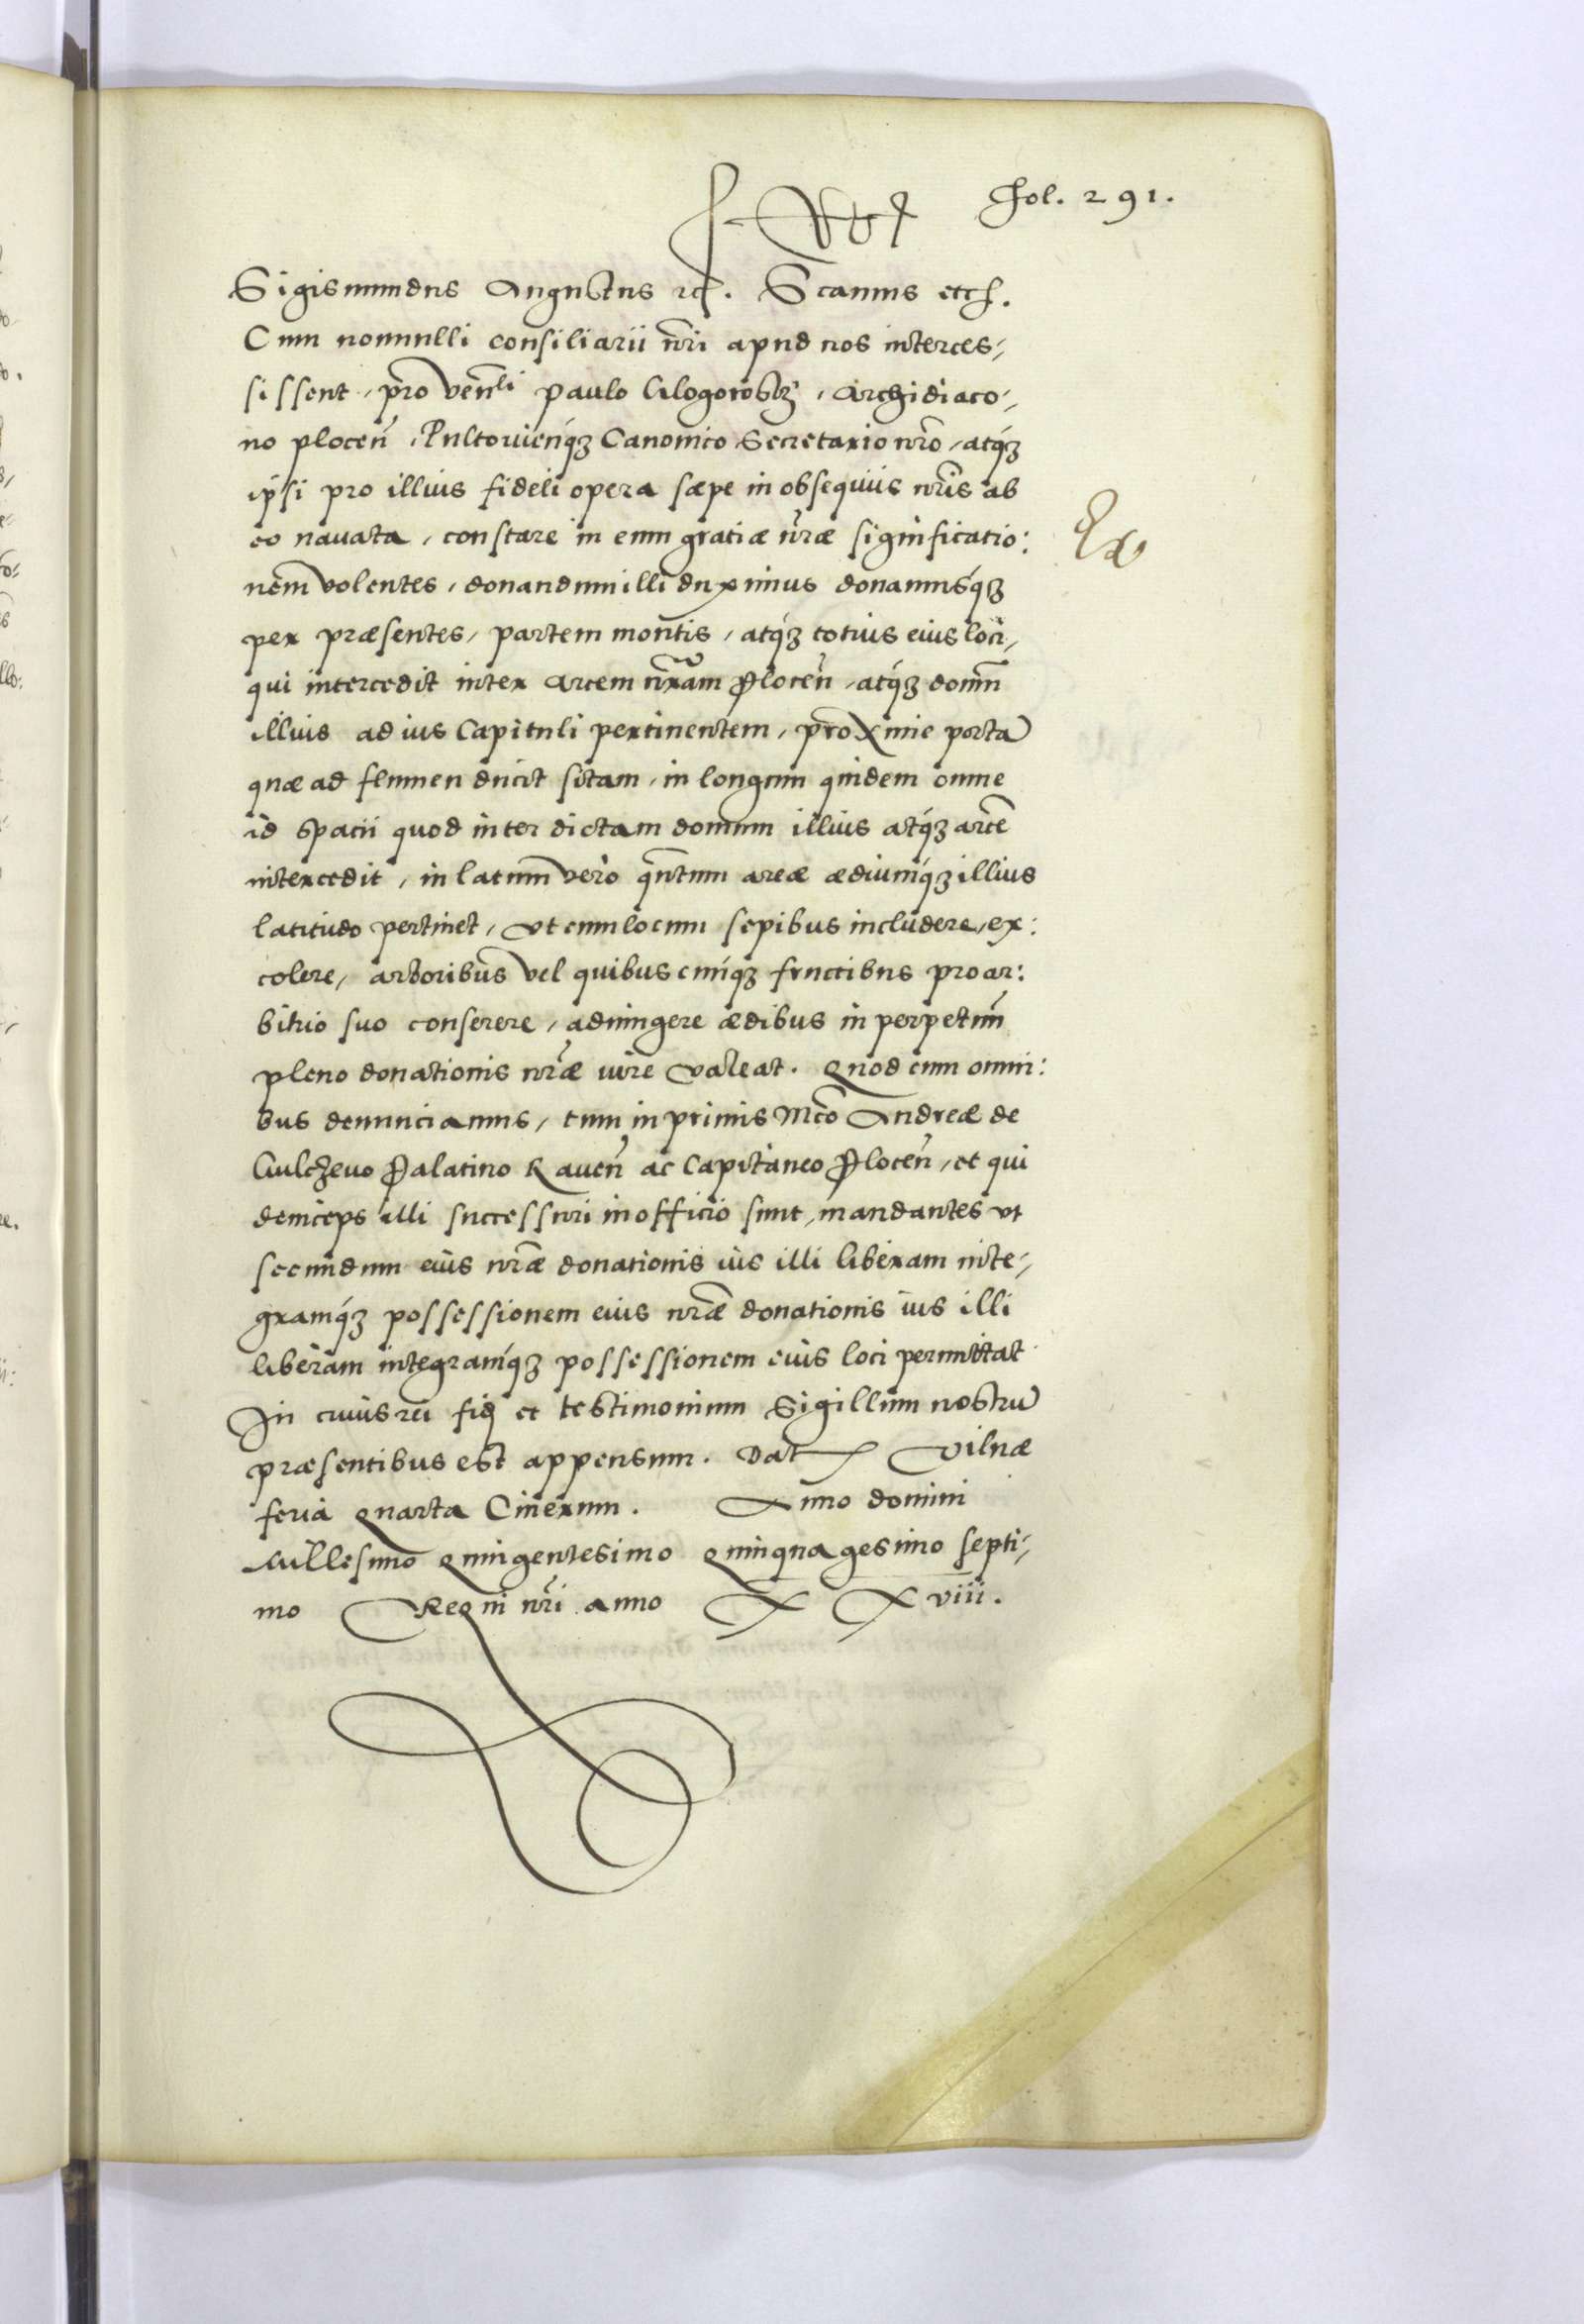 Fol. 291.
Sigismundus Augustus etc. Scanus etc.
Cum nonnulli consiliarii nri apud nos interces-
sissent, pro venli Paulo Glogowski, Archidiaco-
no plocen, Pultoviensq3 Canonico Secretario nro, atq3
ipsi pro illius fideli opera sæpe in obsequiis nris ab
eo navata, constare in eum gratiæ nræ significatio:
nem volentes, donandum illi duximus donamusq3
per præsentes, partem montis, atq3 totius eius loci,
qui intercedit inter arcem nram Plocen, atq3 domum
illius ad ius Capituli pertinentem, proxime porta
quæ ad flumen ducit sitam, in longum quidem omne
id spatii quod inter dictam domum illius atq3 arce
intercedit, in latum vero quntum areæ ædiumq3 illius
latitudo pertinet, ut eum locum sepibus includere, ex:
colere, arboribus vel quibuscumq3 fructibus pro ar:
bitrio suo conserere, adiungere ædibus in perpetuum
pleno donationis nræ iure valeat. Quod cum omni:
bus denunciamus, tum in primis Mco Andreæ de
Gulczevo Palatino Raven ac Capitaneo Plocen, et qui
deinceps illi successuri in officio sunt, mandantes ut
secundum eius nræ donationis ius illi liberam inte-
gramq3 possessionem eius nræ donationis ius illi
liberam integramq3 possessionem eius loci permittat
In cuius rei fid et testimonium Sigillum nostru
præsentibus est appensum. Dat Vilnæ
feria quarta Cinerum. Anno domini
Millesimo quingentesimo quinquagesimo septi-
mo Regni nri anno XXviii.